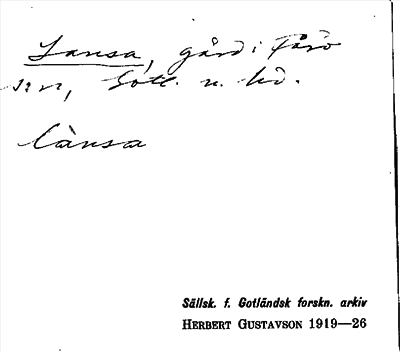 Lansa, gård i Fårö
sn, Gotl. n. hd.
lànsa
Sällsk. f. Gotländsk forskn. arkiv
HERBERT GUSTAVSON 1919—26